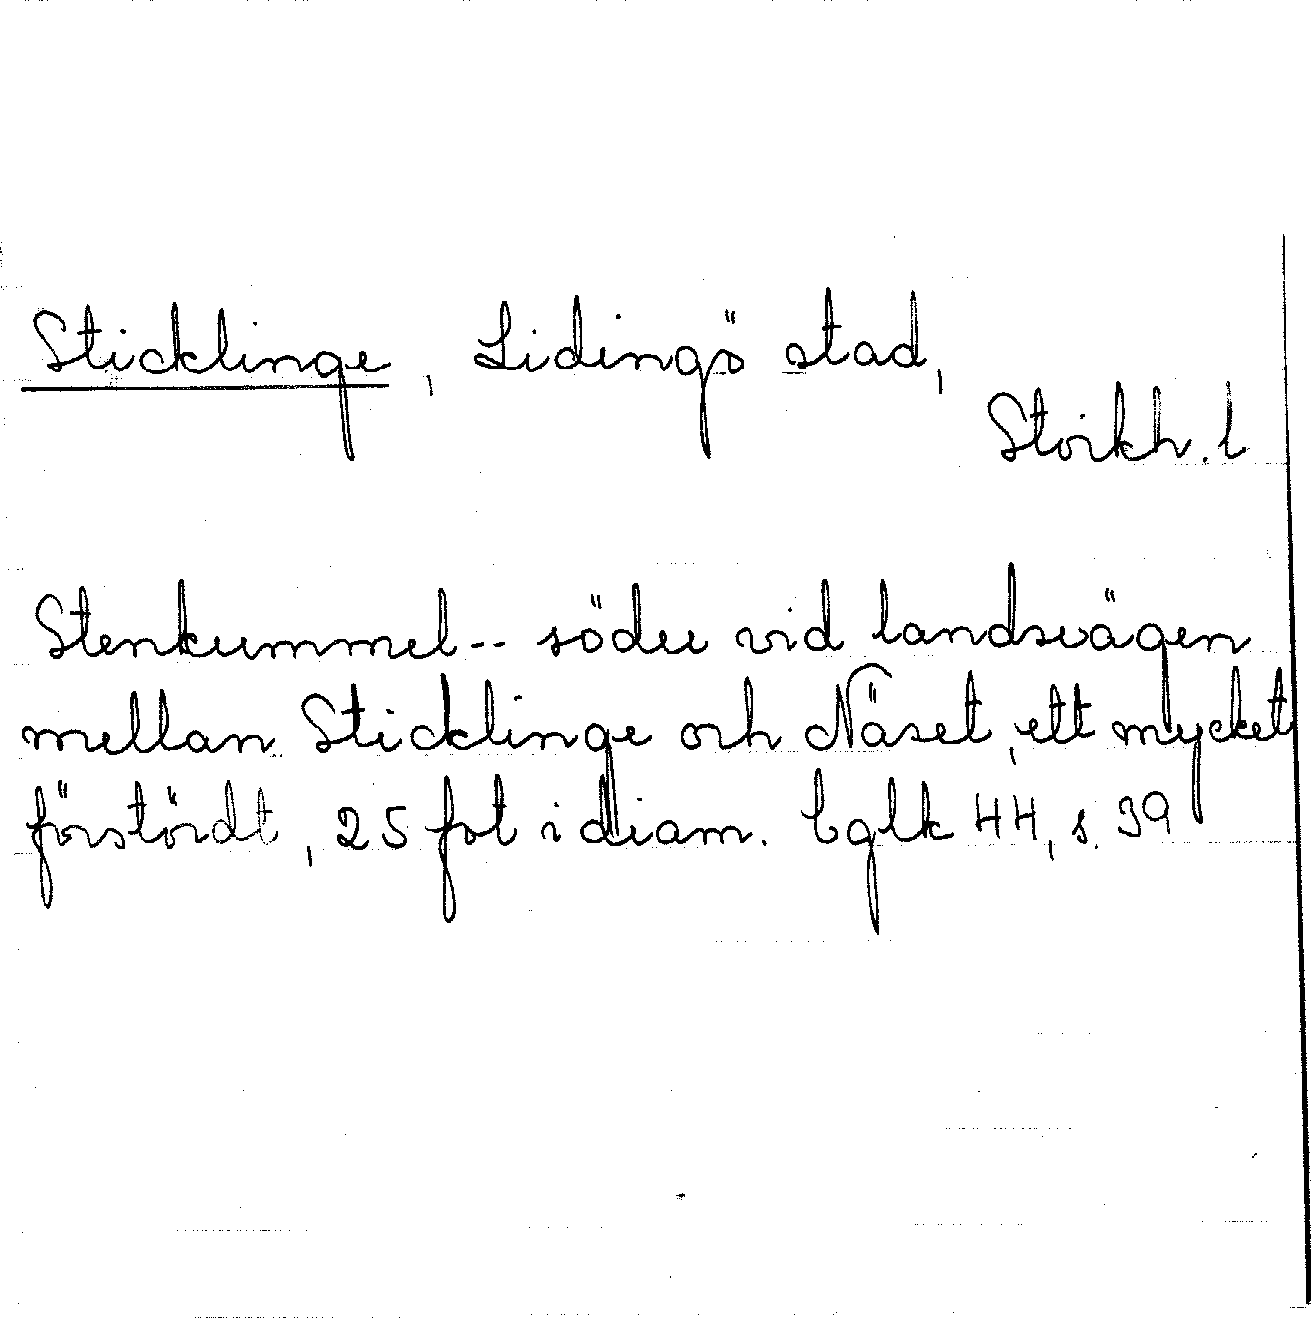 Sticklinge, Lidingö stad,
Stockh. l
Stenkummel -- söder vid landsvägen
mellan Sticklinge och Näset, ett mycket
förstördt, 25 fot i diam. Eglk 44, s. 39